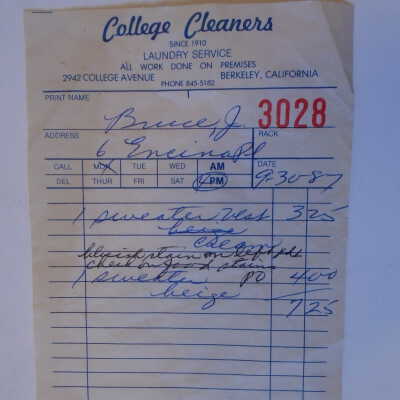 College Cleaners
SINCE 1910
LAUNDRY SERVICE
ALL WORK DONE ON PREMISES
2942 COLLEGE AVENUE BERKELEY, CALIFORNIA
PHONE 845-5162
PRINT NAME
Bruce, J. 3028
ADDRESS RACK
6 Encina Pl
CALL MON TUE WED AM DATE
DEL THUR FRI SAT PM 9-30-87
1 sweater Vest 325
beige
bluish stain on
check on food stains
1 sweater PO 400
beige
725